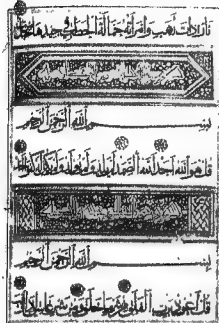 نارا ذات لهب وامرأته حمالة الحطب في جيدها حبل
بسم الله الرحمن الرحيم
قل هو الله أحد الله الصمد لم يلد ولم يولد ولم يكن له
بسم الله الرحمن الرحيم
قل أعوذ برب الفلق من شر ما خلق ومن شر غاسق إذا